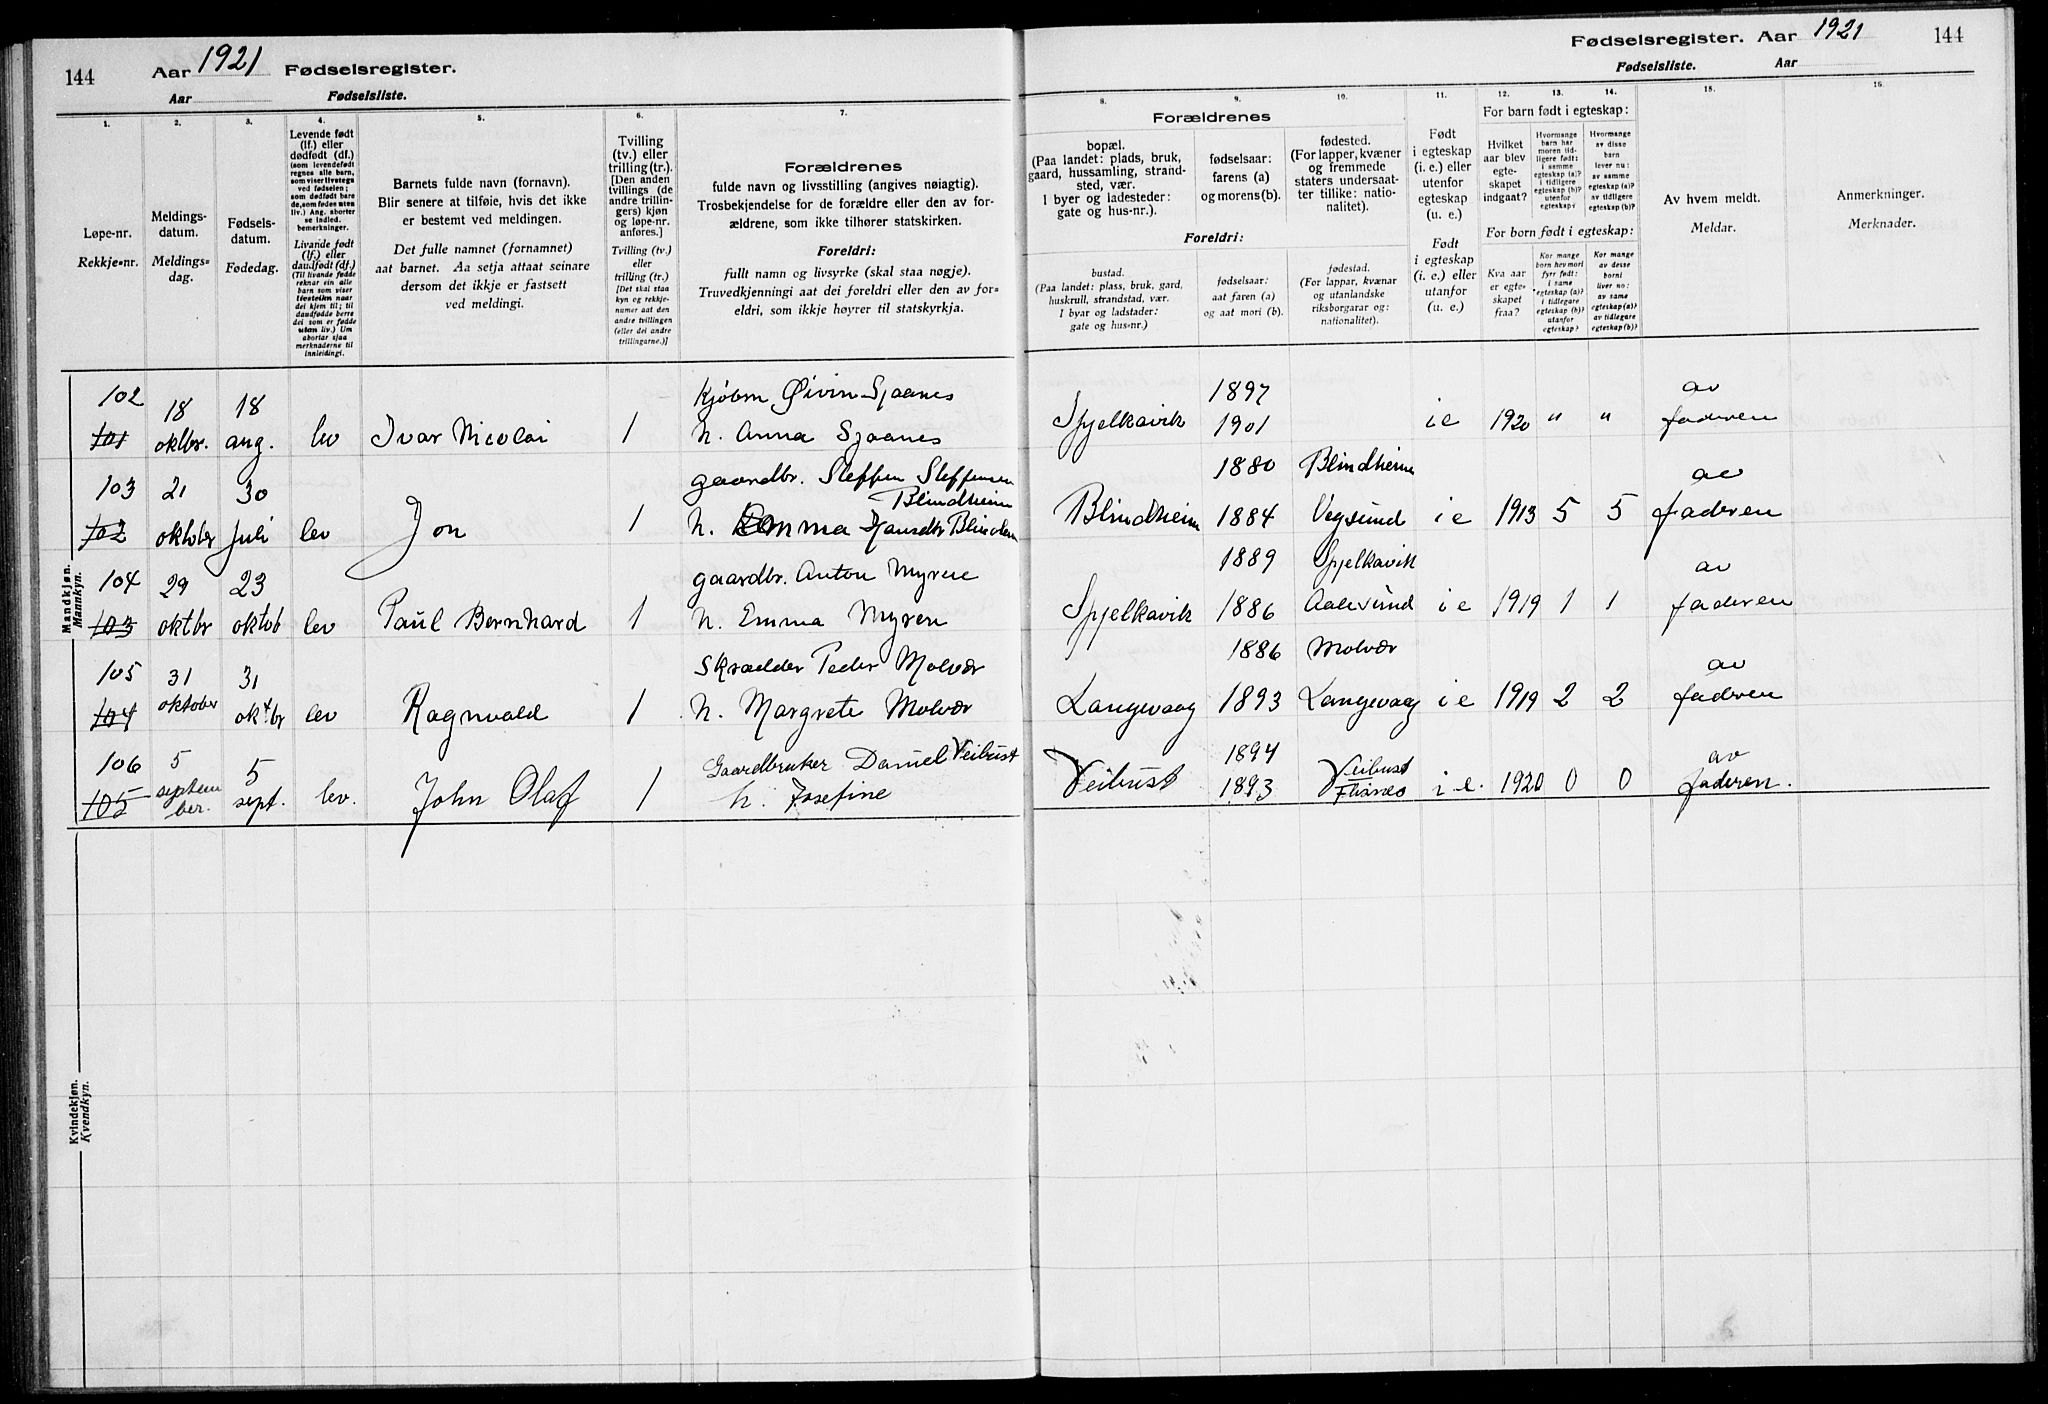 144
Aar 1921 Fødselsregister.
Aar Fødselsliste.
Fødselsregister. Aar 1921 144
Fødselsliste. Aar
1. 2. 3. 4. 5. 6. 7.
Løpe-nr.
Rekkje-nr.
Meldings-
datum.
Meldings-
dag.
Fødsels-
datum.
Fødedag.
Levende født
(lf.) eller
dødfødt (df.)
(som levendefødt
regnes alle barn,
som viser livstegn
ved fødselen;
som dødfødt bare
de, som fødes uten
liv.) Ang. aborter
se indled.
bemerkninger.
Livande født
(lf.) eller
daudfødt (df.)
(Til livande fødde
reknar ein alle
barn som viser
livsteikn naar
dei kjem til; til
daudfødde berre
dei som er fødde
utan liv.) Um
abortar sjaa
merknaderne til
innleidingi.
Barnets fulde navn (fornavn).
Blir senere at tilføie, hvis det ikke
er bestemt ved meldingen.
Det fulle namnet (fornamnet)
aat barnet. Aa setja attaat seinare
dersom det ikkje er fastsett
ved meldingi.
Tvilling
(tv.) eller
trilling (tr.).
[Den anden
tvillings (de
andre trillin-
gers) kjøn
og løpe-nr.
anføres.]
Tvilling (tv.)
eller
trilling (tr.)
[Det skal staa
kyn og rekkje-
numer aat den
andre tvillingen
(eller dei andre
trillingarne.)]
Forældrenes
fulde navn og livsstilling (angives nøiagtig).
Trosbekjendelse for de forældre eller den av for-
ældrene, som ikke tilhører statskirken.
Foreldri:
fullt namn og livsyrke (skal staa nøgje).
Truvedkjenningi aat dei foreldri eller den av for-
eldri, som ikkje høyrer til statskyrkja.
8. 9. 10. 11. 12. 13. 14. 15. 16.
Forældrenes
bopæl.
(Paa landet: plads, bruk,
gaard, hussamling, strand-
sted, vær.
I byer og ladesteder:
gate og hus-nr.).
fødselsaar:
farens (a)
og morens (b).
fødested.
(For lapper, kvæner
og fremmede
staters undersaat-
ter tillike: natio-
nalitet).
Foreldri:
bustad.
(Paa landet: plass, bruk, gard,
huskrull, strandstad, vær.
I byar og ladstader:
gate og hus-nr.)
fødselsaar:
aat faren (a)
og aat mori (b).
fødestad.
(For lappar, kvænar
og utanlandske
riksborgarar og:
nationalitet).
Født
i egteskap
(i. e.) eller
utenfor
egteskap
(u. e.)
Født
i egteskap
(i. e.) eller
utanfor
(u. e.)
For barn født i egteskap:
Hvilket
aar blev
egte-
skapet
indgaat?
Hvormange
barn har
moren tid-
ligere født:
i samme
egteskap (a)?
i tidligere
egteskap (b)?
utenfor
egteskap?
Hvormange
av disse
barn
lever nu:
av samme
egteskap (a)?
av tidligere
egteskap (b)?
For born født i egteskap:
Kva aar
er egte-
skapet
fraa?
Kor mange
born hev mori
fyrr født:
i same
egteskap (a)?
i tidlegare
egteskap (b)?
utanfor
egteskap?
Kor mange
av desse
borni
liver no:
av same
egteskap (a)?
av tidlegare
egteskap (b)?
Av hvem meldt.
Meldar.
Anmerkninger.
Merknader.
Mandkjøn.
Mannkyn.
102 18 18 Kjøbm Øivin Sjaanes 1897 av
101 oktbr. aug. lev Ivar Nicolai 1 h. Anna Sjaanes Spjelkavik 1901 i e 1920 " " faderen
103 21 30 gaardbr. Steffen Steffensen Blindheim 1880 Blindheim av
102 oktober Juli lev Jon 1 h. Emma Blindheim 1884 Vegsund i e 1913 5 5 faderen
104 29 23 gaardbr. Anton Myren 1889 Spjelkavik av
103 oktbr oktob lev Paul Bernhard 1 h. Emma Myren Spjelkavik 1886 Aalesund i e 1919 1 1 faderen
105 31 31 Skrædder Peder Molvær 1886 Molvær av
104 oktober oktbr lev Ragnvald 1 h. Margrete Molvær Langevaag 1893 Langevaag i e 1919 2 2 faderen
106 5 5 Gaardbruker Daniel Veibust 1894 Veibust av
105 september. sept. lev. John Olaf 1 h. Josefine Veibust 1893 i e. 1920 0 0 faderen.
Kvindekjøn.
Kvendkyn.